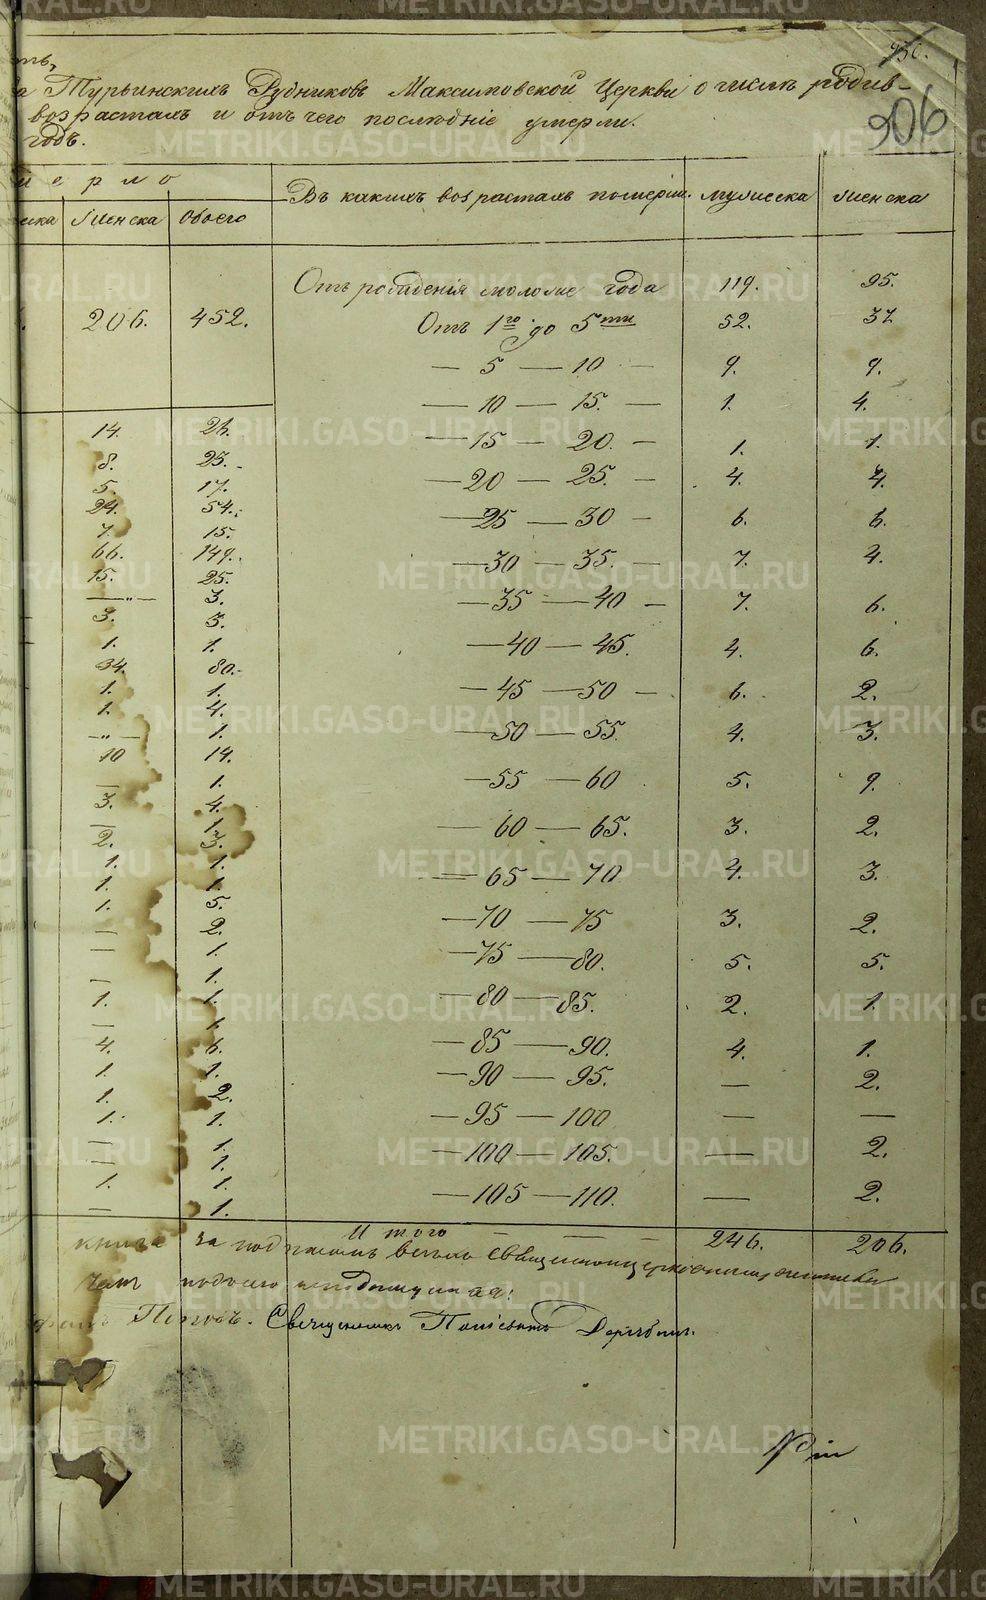 930.
906
ть,
а Турьинскихъ Рудниковъ Максимовской Церкви о числѣ родив-
возрастахъ и отъ чего послѣдніе умерли.
годъ.
мерло
ска женска Обоего
Въ какихъ возрастахъ померли. мужеска женска
206. 452.
Отъ рожденія моложе года 119. 95.
Отъ 1го до 5ти 52. 37
— 5 — 10 — 9. 9.
— 10 — 15. — 1. 4.
— 15 — 20. — 1. 1.
— 20 — 25. — 4. 4.
— 25 — 30 — 6. 6.
— 30 — 35. — 7. 4.
— 35 — 40 — 7. 6.
— 40 — 45. 4. 6.
— 45 — 50 — 6. 2.
— 50 — 55 4. 3.
— 55 — 60 5. 9.
— 60 — 65. 3. 2.
— 65 — 70 4. 3.
— 70 — 75 3. 2.
— 75 — 80. 5. 5.
— 80 — 85. 2. 1.
— 85 — 90. 4. 1.
— 90 — 95. — 2.
— 95 — 100 — —
— 100 — 105. — 2.
— 105 — 110. — 2.
Итого — — — 246. 206.
14. 26.
8. 25.
5. 17.
24. 54.
7. 15.
66. 149.
15. 25.
—„— 3.
3. 5.
1. 1.
34. 80.
1. 1.
1. 4.
—„— 1.
10 14.
— 1.
3. 4.
— 1.
2. 3.
1. 1.
1. 1.
1. 5.
— 2.
— 1.
— 1.
1. 1.
— 1.
4. 6.
1. 1.
1. 2.
1. 1.
— 1.
— 1.
1. 1.
— 1.
книга за подписомъ
Поповъ. Священникъ
METRIKI.GASO-URAL.RU